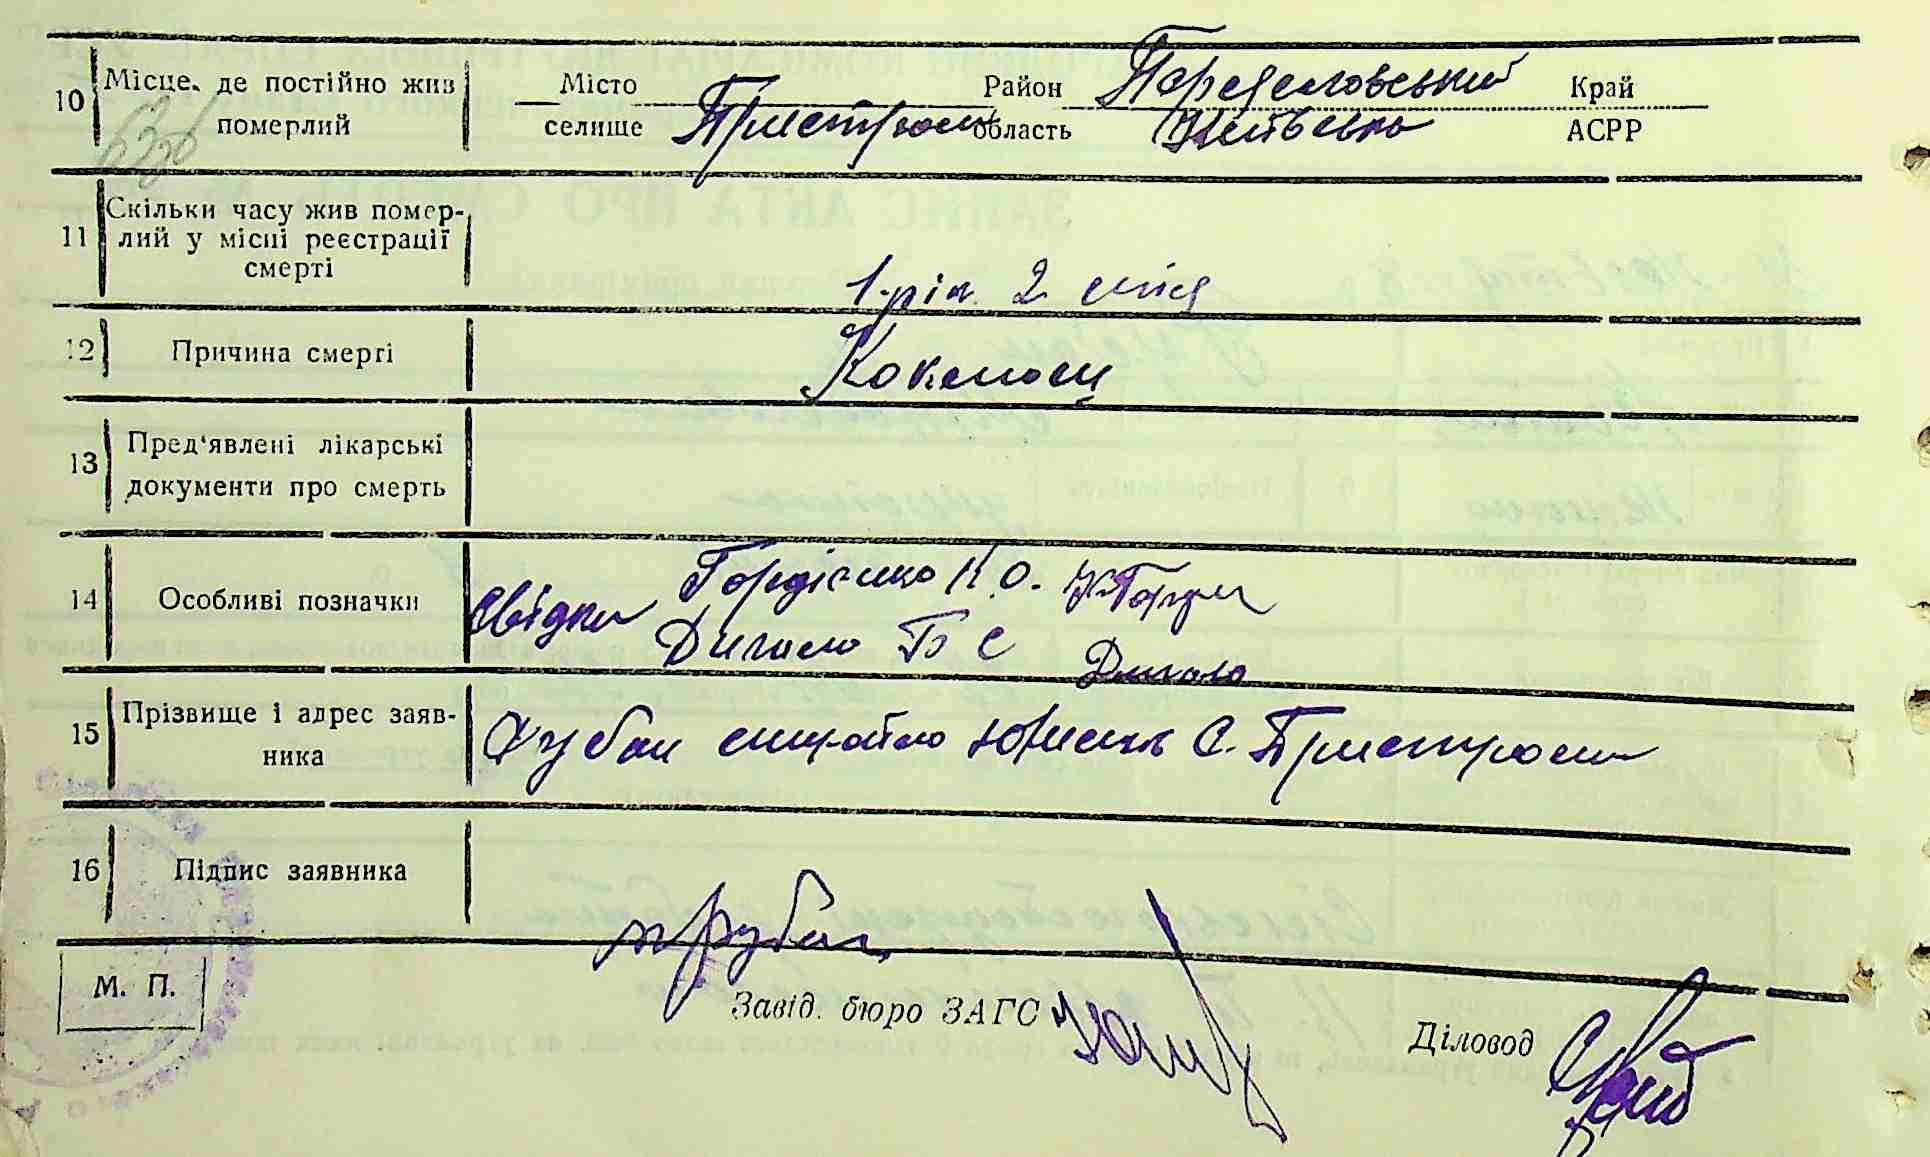 10 Місце, де постійно жив померлий
Місто селище Пристроми Район Переяславський область Київська Край АСРР
11 Скільки часу жив помер-
лий у місці реєстрації
смерті
1 рік 2 міся
12 Причина смерті
Коклюш
13 Пред'явлені лікарські
документи про смерть
14 Особливі позначки
свідки Гордієнко К. О.
Дигало Б С Дигало
15 Прізвище і адрес заяв-
ника
с. Пристроми
16 Підпис заявника
М. П.
Завід. бюро ЗАГС
Діловод